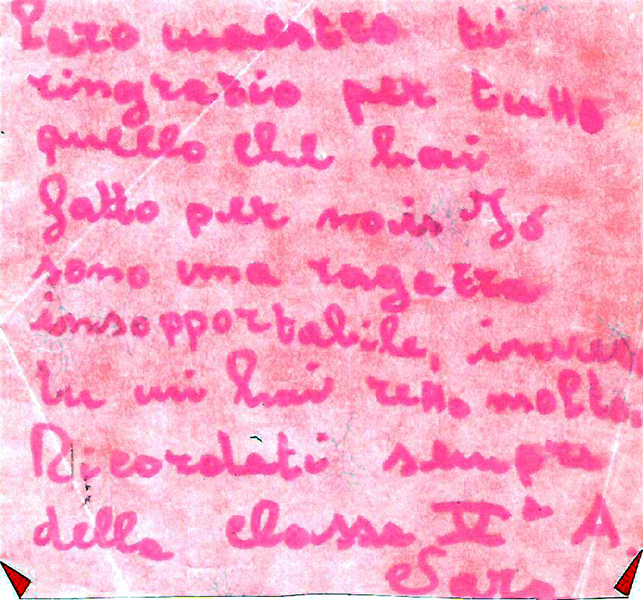 Caro maestro ti
ringrazio per tutto
quello che hai
fatto per noi. Io
sono una ragazza
insopportabile, invece
tu mi hai retto molto.
Ricordati sempre
della classe Vª A
Sara